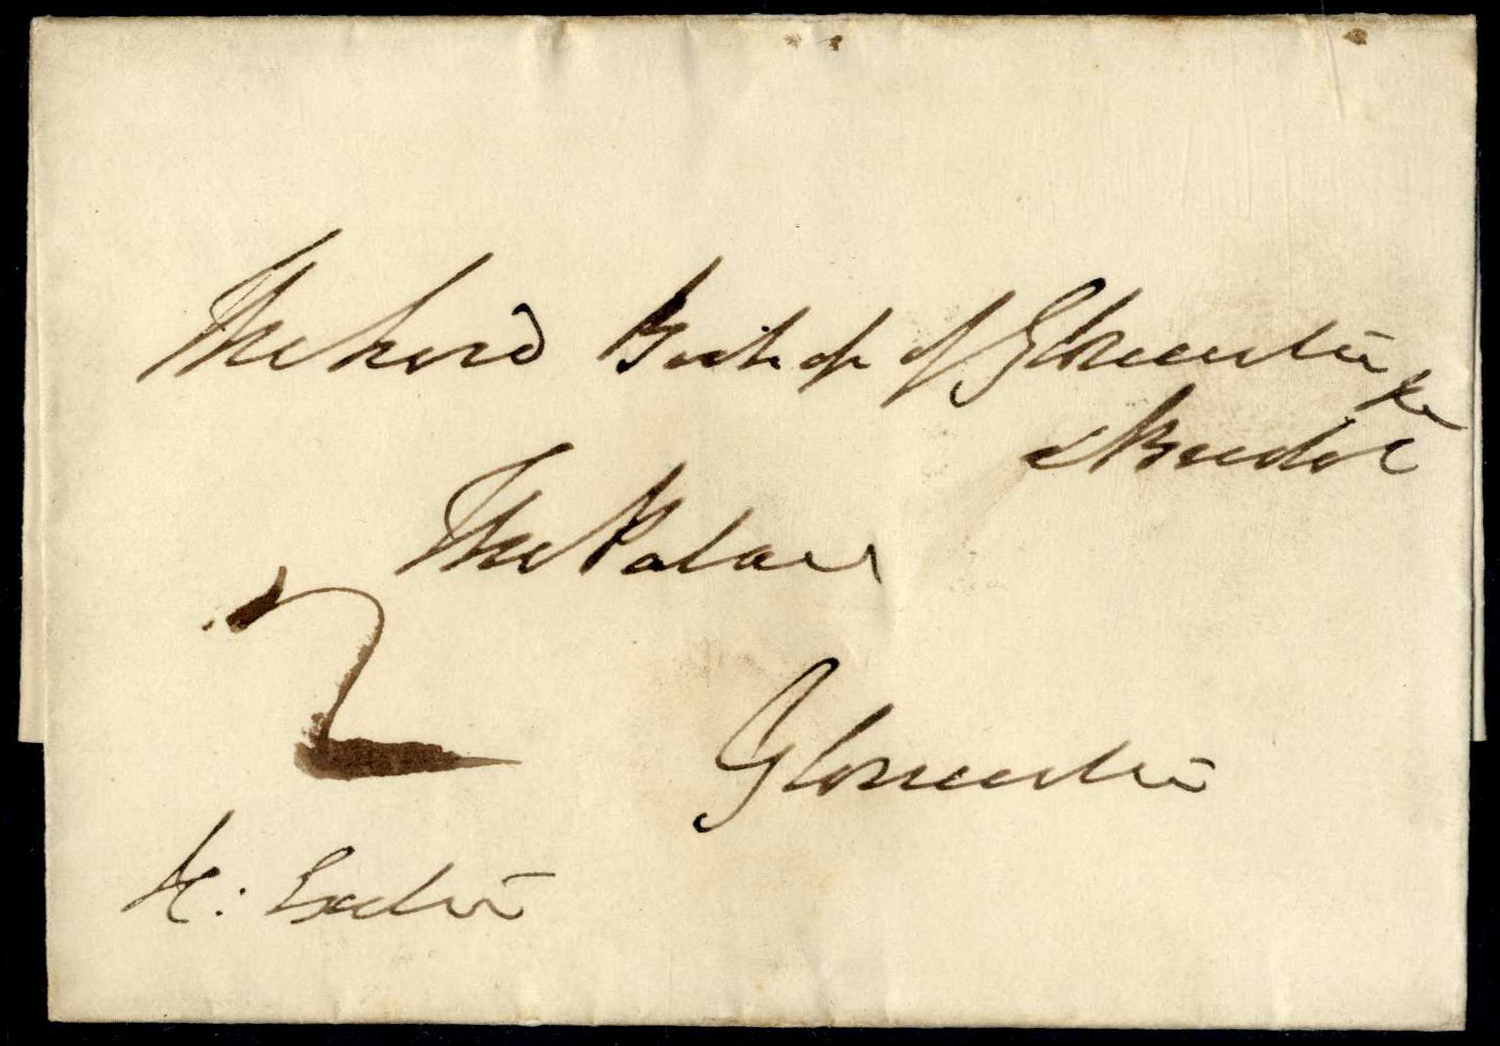 The Lord Bishop of Gloucester &c
& Bristol
The Palace
2
Gloucester
H: Exeter